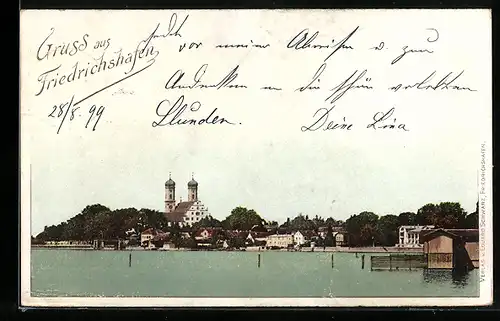 Gruss aus
Friedrichshafen
vor meiner Abreise u. zum
28/8. 99
Andenken an die schön verlebten
Stunden.
Deine Lina
VERLAG LEONHARD SCHWARZ, FRIEDRICHSHAFEN.